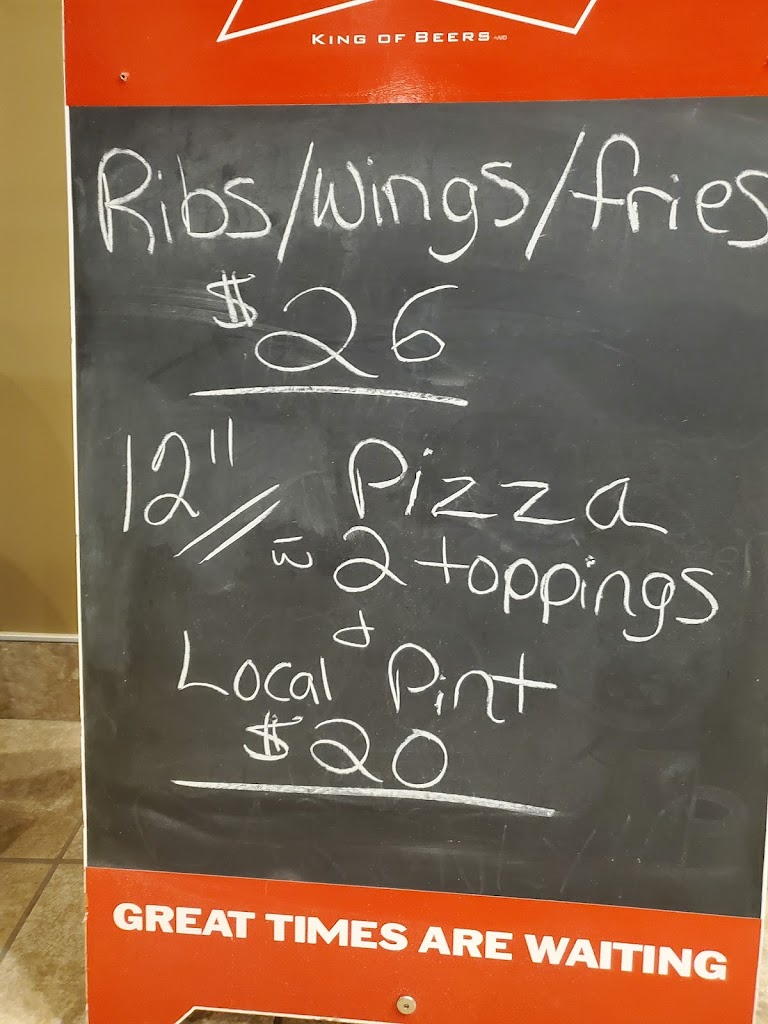 KING OF BEERS
Ribs/Wings/fries
$26
12" Pizza
w 2 toppings
+
Local Pint
$20
GREAT TIMES ARE WAITING